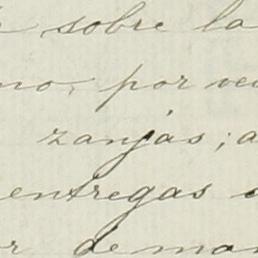 sobre la
por
zanjas; a
entregas